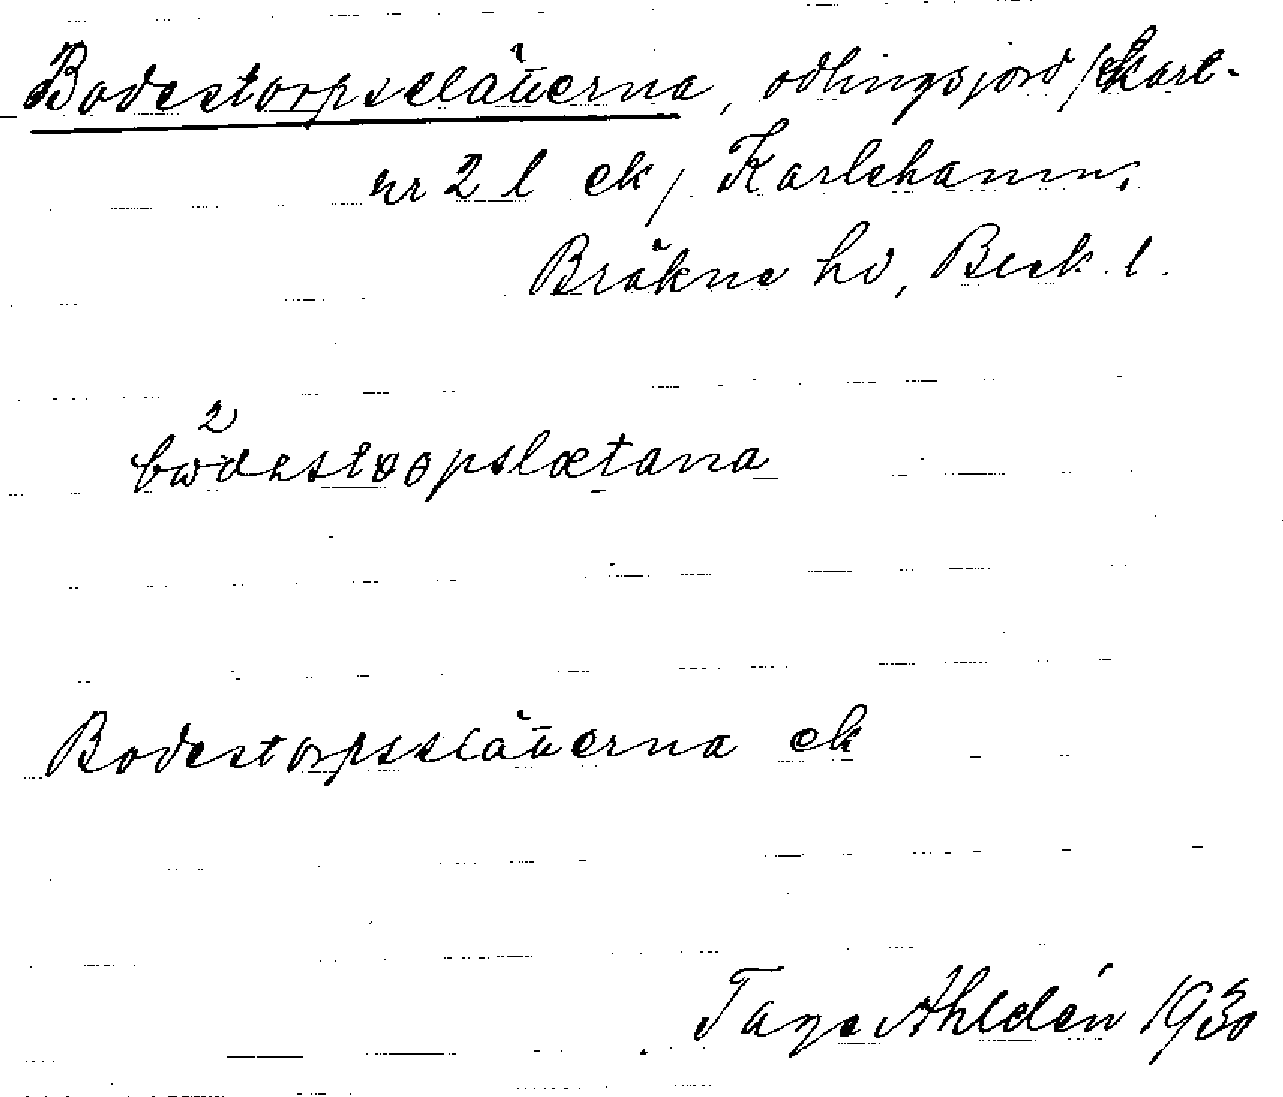 Bodestorpsslätterna, odlingsjord / Karl-
nr 2 l ek / Karlshamn,
Bräkne hd, Blek. l.
2
bωdestoopslætana
Bodestorpsslätterna ek
Tage Ahldén 1930